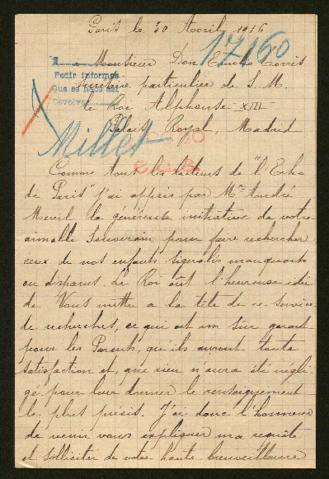 Paris le 30 Avril 1916
17160
A Monsieur Don Emilio Torrés
Pedir informes
secrétaire particulier de S. M.
le Roi Alphonse XIII
Palais Royal, Madrid
Millet
Comme tous les lecteurs de "l'Echo
de Paris" j'ai appris par Mr André
la généreuse initiative de votre
aimable Souverain pour faire rechercher
ceux de nos enfants signalés manquants
ou disparus. Le Roi eut l'heureuse idée
de Vous mettre à la tête de ce service
de recherches, ce qui est un sûr garant
pour les Parents, qu'ils auront toute
satisfaction et que rien n'aura été négli
gé pour leur donner le renseignement
le plus précis. J'ai donc l'honneur
de venir vous expliquer ma requête
et solliciter de votre haute bienveillance